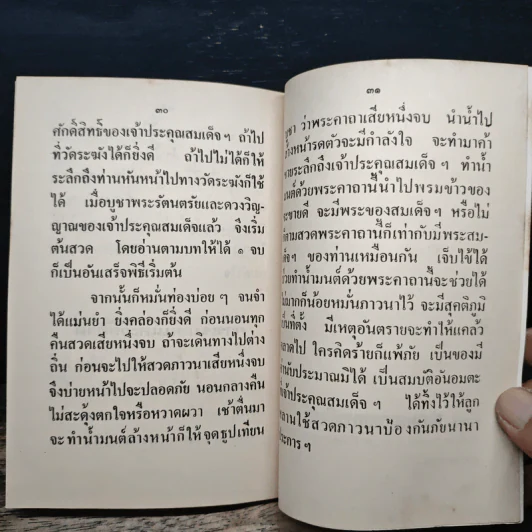 ๓๐
ศักดิ์สิทธิ์ของเจ้าประคุณสมเด็จฯ ถ้าไป
ที่วัดระฆังได้ก็ยิ่งดี ถ้าไปไม่ได้ก็ให้
ระลึกถึงท่านหันหน้าไปทางวัดระฆังก็ใช้
ได้ เมื่อบูชาพระรัตนตรัยและดวงวิญ-
ญาณของเจ้าประคุณสมเด็จแล้ว จึงเริ่ม
ต้นสวด โดยอ่านตามบทให้ได้ ๑ จบ
ก็เป็นอันเสร็จพิธีเริ่มต้น
จากนั้นก็หมั่นท่องบ่อย ๆ จนจำ
ได้แม่นยำ ยิ่งคล่องก็ยิ่งดี ก่อนนอนทุก
คืนสวดเสียหนึ่งจบ ถ้าจะเดินทางไปต่าง
ถิ่น ก่อนจะไปให้สวดภาวนาเสียหนึ่งจบ
จึงบ่ายหน้าไปจะปลอดภัย นอนกลางคืน
ไม่สะดุ้งตกใจหรือหวาดผวา เช้าตื่นมา
จะทำน้ำมนต์ล้างหน้าก็ให้จุดธูปเทียน
๓๑
บูชา ว่าพระคาถาเสียหนึ่งจบ นำน้ำไป
ล้างหน้ารดตัวจะมีกำลังใจ จะทำมาค้า
ขายระลึกถึงเจ้าประคุณสมเด็จๆ ทำน้ำ
มนต์ด้วยพระคาถานี้นำไปพรมข้าวของ
จะขายดี จะมีพระของสมเด็จๆ หรือไม่
ก็ตามสวดพระคาถานี้ก็เท่ากับมีพระสม-
เด็จๆ ของท่านเหมือนกัน เจ็บไข้ได้
ป่วยทำน้ำมนต์ด้วยพระคาถานี้จะช่วยได้
ไม่มากก็น้อยหมั่นภาวนาไว้ จะมีสุคติภูมิ
เป็นที่ตั้ง มีเหตุอันตรายจะทำให้แคล้ว
คลาดไป ใครคิดร้ายก็แพ้ภัย เป็นของมี
นับประมาณมิได้ เป็นสมบัติอันอมตะ
เจ้าประคุณสมเด็จๆ ได้ทิ้งไว้ให้ลูก
หลานใช้สวดภาวนาป้องกันภัยนานา
ประการ ๆ